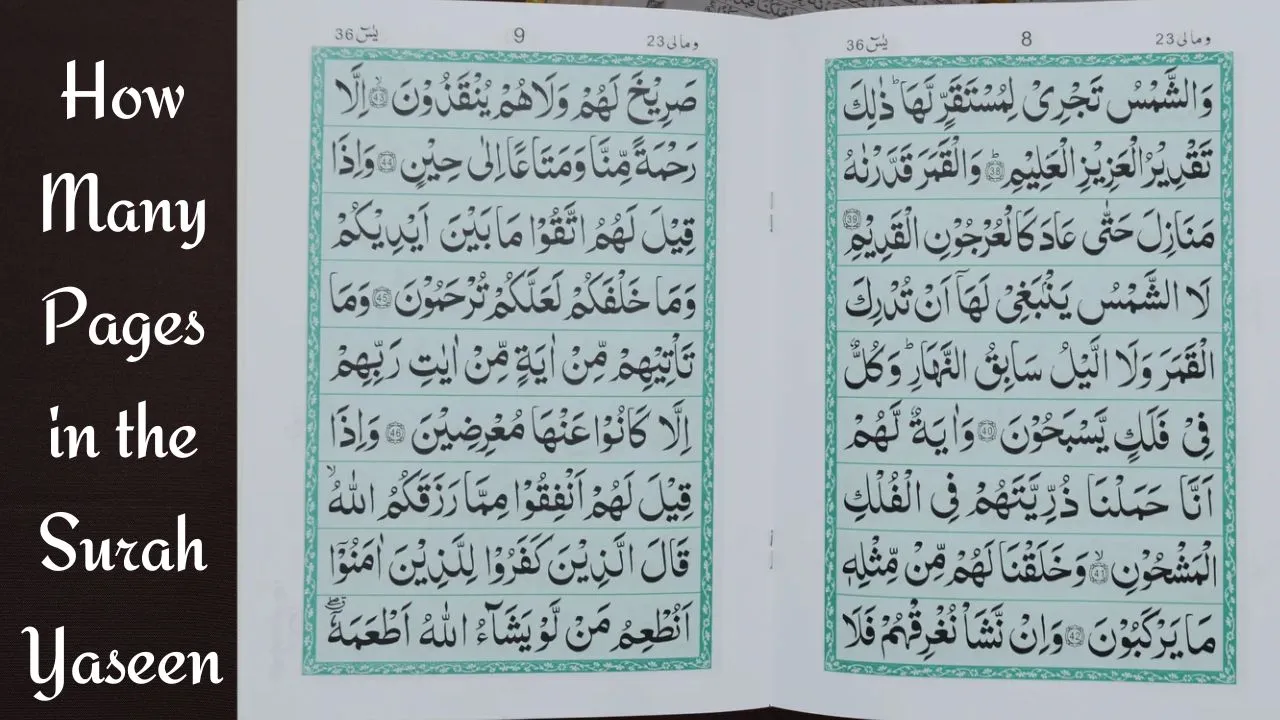 How
Many
Pages
in the
Surah
Yaseen
ومالی 23
8
یٰسٓ 36
وَالشَّمْسُ تَجْرِیْ لِمُسْتَقَرٍّ لَّهَا ؕ ذٰلِكَ
تَقْدِیْرُ الْعَزِیْزِ الْعَلِیْمِ ؕ 38 وَالْقَمَرَ قَدَّرْنٰهُ
مَنَازِلَ حَتّٰی عَادَ كَالْعُرْجُوْنِ الْقَدِیْمِ 39
لَا الشَّمْسُ یَنْۢبَغِیْ لَهَاۤ اَنْ تُدْرِكَ
الْقَمَرَ وَلَا الَّیْلُ سَابِقُ النَّهَارِ ؕ وَكُلٌّ
فِیْ فَلَكٍ یَّسْبَحُوْنَ 40 وَاٰیَةٌ لَّهُمْ
اَنَّا حَمَلْنَا ذُرِّیَّتَهُمْ فِی الْفُلْكِ
الْمَشْحُوْنِ ۙ 41 وَخَلَقْنَا لَهُمْ مِّنْ مِّثْلِهٖ
مَا یَرْكَبُوْنَ 42 وَاِنْ نَّشَاْ نُغْرِقْهُمْ فَلَا
ومالی 23
9
یٰسٓ 36
صَرِیْخَ لَهُمْ وَلَاهُمْ یُنْقَذُوْنَ ۙ 43 اِلَّا
رَحْمَةً مِّنَّا وَمَتَاعًا اِلٰی حِیْنٍ 44 وَاِذَا
قِیْلَ لَهُمُ اتَّقُوْا مَا بَیْنَ اَیْدِیْكُمْ
وَمَا خَلْفَكُمْ لَعَلَّكُمْ تُرْحَمُوْنَ 45 وَمَا
تَاْتِیْهِمْ مِّنْ اٰیَةٍ مِّنْ اٰیٰتِ رَبِّهِمْ
اِلَّا كَانُوْا عَنْهَا مُعْرِضِیْنَ 46 وَاِذَا
قِیْلَ لَهُمْ اَنْفِقُوْا مِمَّا رَزَقَكُمُ اللّٰهُ ۙ
قَالَ الَّذِیْنَ كَفَرُوْا لِلَّذِیْنَ اٰمَنُوْۤا
اَنُطْعِمُ مَنْ لَّوْ یَشَآءُ اللّٰهُ اَطْعَمَهٗۤ